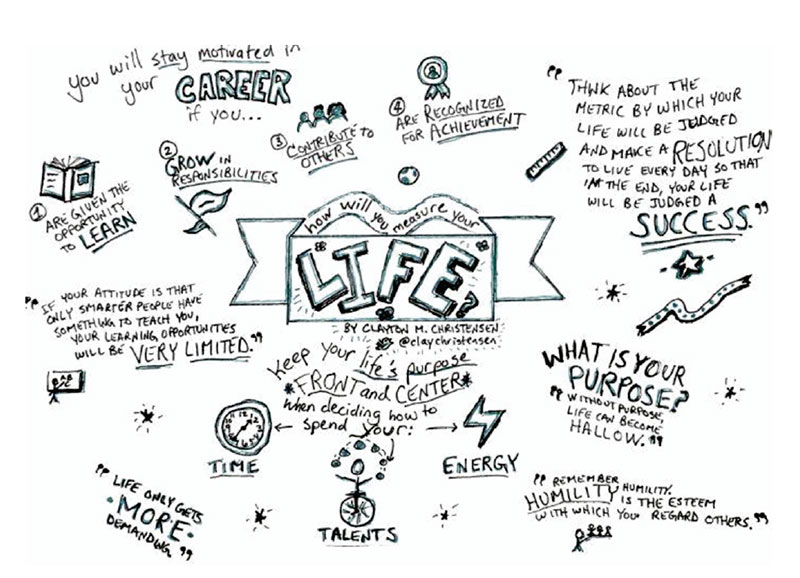 you will stay motivated in
your CAREER
if you...
① ARE GIVEN THE
OPPORTUNITY
TO LEARN
② GROW IN
RESPONSIBILITIES
③ CONTRIBUTE to
OTHERS
④ ARE RECOGNIZED
FOR ACHIEVEMENT
" THINK ABOUT THE
METRIC BY WHICH YOUR
LIFE WILL BE JUDGED
AND MAKE A RESOLUTION
TO LIVE EVERY DAY SO THAT
IN THE END, YOUR LIFE
WILL BE JUDGED A
SUCCESS."
how will you measure your
LIFE?
BY CLAYTON M. CHRISTENSEN
@claychristensen
" IF YOUR ATTITUDE IS THAT
ONLY SMARTER PEOPLE HAVE
SOMETHING TO TEACH YOU,
YOUR LEARNING OPPORTUNITIES
WILL BE VERY LIMITED."
Keep your life's purpose
*FRONT and CENTER*
when deciding how to
spend your:
TIME
TALENTS
ENERGY
WHAT IS YOUR
PURPOSE?
" WITHOUT PURPOSE,
LIFE CAN BECOME
HALLOW."
" LIFE ONLY GETS
·MORE·
DEMANDING."
" REMEMBER HUMILITY.
HUMILITY IS THE ESTEEM
WITH WHICH YOU REGARD OTHERS."